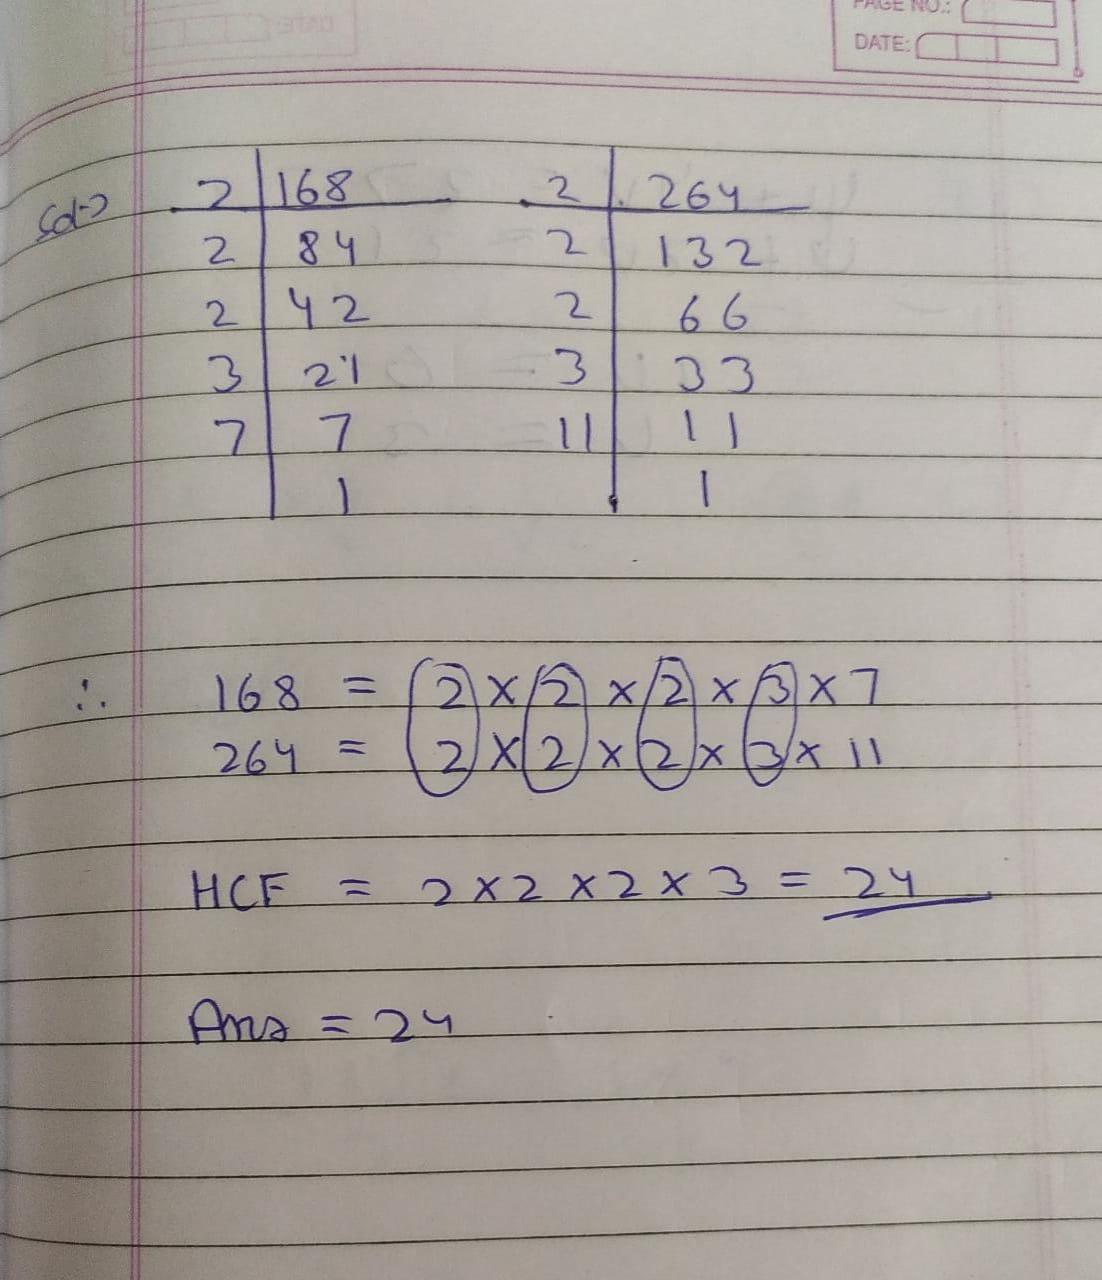 PAGE NO.:
DATE:
Sol-> 2 | 168 2 | 264
2 | 84 2 | 132
2 | 42 2 | 66
3 | 21 3 | 33
7 | 7 11 | 11
1 1
∴ 168 = 2 × 2 × 2 × 3 × 7
264 = 2 × 2 × 2 × 3 × 11
HCF = 2 × 2 × 2 × 3 = 24
Ans = 24